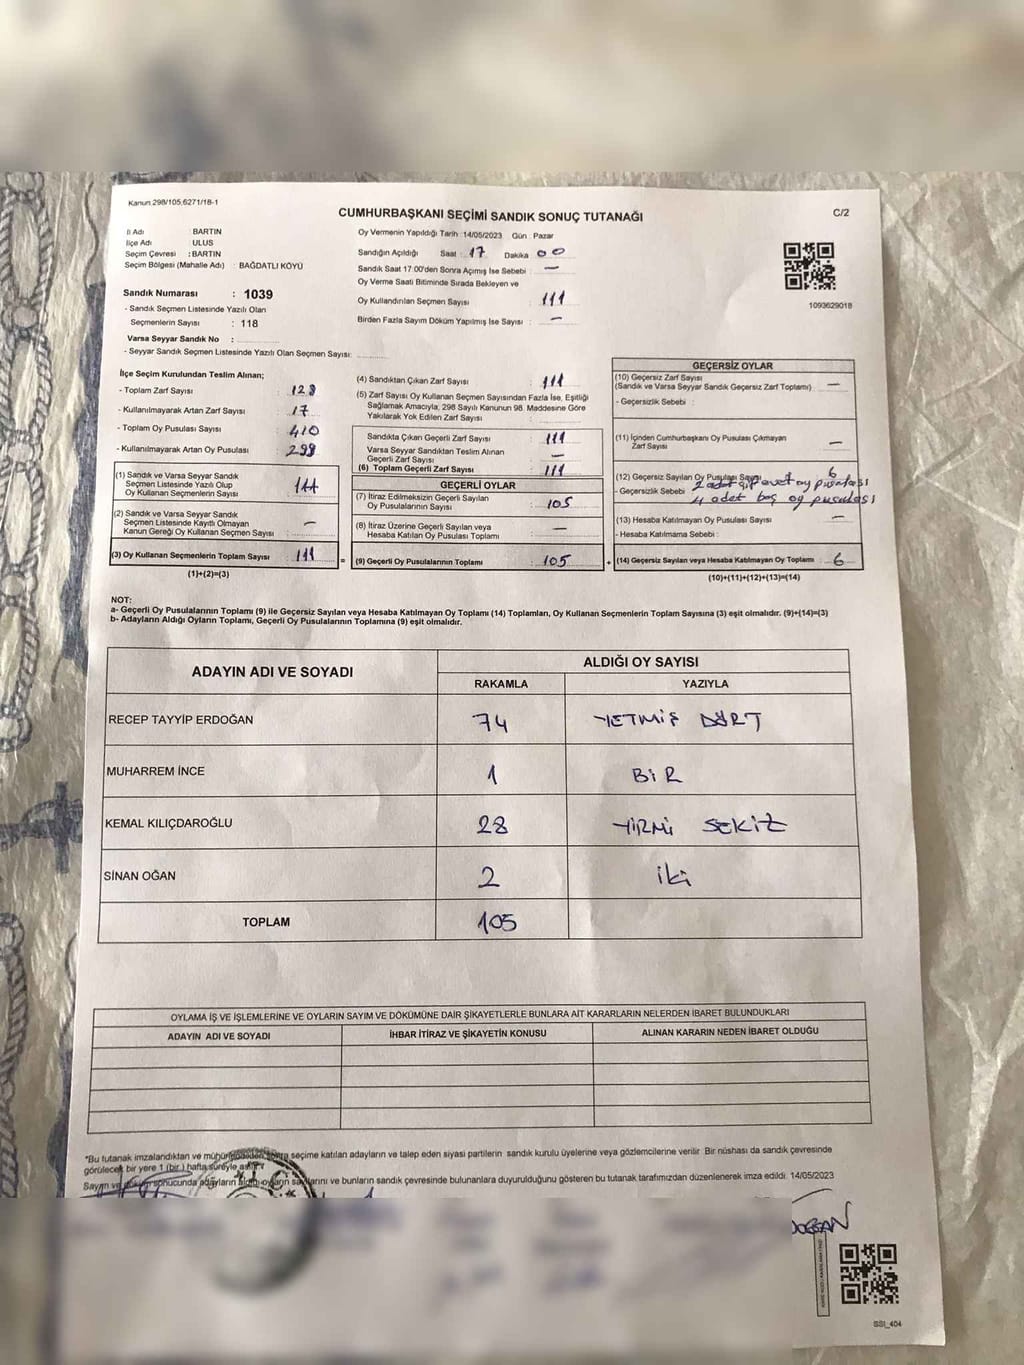 Kanun 298/105,6271/18-1
CUMHURBAŞKANI SEÇİMİ SANDIK SONUÇ TUTANAĞI
C/2
İl Adı : BARTIN
İlçe Adı : ULUS
Seçim Çevresi : BARTIN
Seçim Bölgesi (Mahalle Adı) : BAĞDATLI KÖYÜ
Sandık Numarası : 1039
- Sandık Seçmen Listesinde Yazılı Olan
Seçmenlerin Sayısı : 118
Varsa Seyyar Sandık No :
- Seyyar Sandık Seçmen Listesinde Yazılı Olan Seçmen Sayısı:
Oy Vermenin Yapıldığı Tarih :14/05/2023 Gün : Pazar
Sandığın Açıldığı Saat : 17 Dakika 00
Sandık Saat 17:00'den Sonra Açımış İse Sebebi : —
Oy Verme Saati Bitiminde Sırada Bekleyen ve
Oy Kullandırılan Seçmen Sayısı : 111
Birden Fazla Sayım Döküm Yapılmış İse Sayısı : —
1093629018
İlçe Seçim Kurulundan Teslim Alınan;
- Toplam Zarf Sayısı : 128
- Kullanılmayarak Artan Zarf Sayısı : 17
- Toplam Oy Pusulası Sayısı : 410
- Kullanılmayarak Artan Oy Pusulası : 299
(1) Sandık ve Varsa Seyyar Sandık
Seçmen Listesinde Yazılı Olup
Oy Kullanan Seçmenlerin Sayısı : 111
(2) Sandık ve Varsa Seyyar Sandık
Seçmen Listesinde Kayıtlı Olmayan
Kanun Gereği Oy Kullanan Seçmen Sayısı : —
(3) Oy Kullanan Seçmenlerin Toplam Sayısı : 111
(1)+(2)=(3)
(4) Sandıktan Çıkan Zarf Sayısı : 111
(5) Zarf Sayısı Oy Kullanan Seçmen Sayısından Fazla İse, Eşitliği
Sağlamak Amacıyla, 298 Sayılı Kanunun 98. Maddesine Göre
Yakılarak Yok Edilen Zarf Sayısı :
Sandıkta Çıkan Geçerli Zarf Sayısı : 111
Varsa Seyyar Sandıktan Teslim Alınan
Geçerli Zarf Sayısı : —
(6) Toplam Geçerli Zarf Sayısı : 111
GEÇERLİ OYLAR
(7) İtiraz Edilmeksizin Geçerli Sayılan
Oy Pusulalarının Sayısı : 105
(8) İtiraz Üzerine Geçerli Sayılan veya
Hesaba Katılan Oy Pusulası Toplamı : —
= (9) Geçerli Oy Pusulalarının Toplamı : 105
GEÇERSİZ OYLAR
(10) Geçersiz Zarf Sayısı
(Sandık ve Varsa Seyyar Sandık Geçersiz Zarf Toplamı) : —
- Geçersizlik Sebebi :
(11) İçinden Cumhurbaşkanı Oy Pusulası Çıkmayan
Zarf Sayısı : —
(12) Geçersiz Sayılan Oy Pusulası Sayısı 6
- Geçersizlik Sebebi : 2 adet çift evet oy pusulası
4 adet boş oy pusulası
(13) Hesaba Katılmayan Oy Pusulası Sayısı : —
- Hesaba Katılmama Sebebi :
+ (14) Geçersiz Sayılan veya Hesaba Katılmayan Oy Toplamı : 6
(10)+(11)+(12)+(13)=(14)
NOT:
a- Geçerli Oy Pusulalarının Toplamı (9) ile Geçersiz Sayılan veya Hesaba Katılmayan Oy Toplamı (14) Toplamları, Oy Kullanan Seçmenlerin Toplam Sayısına (3) eşit olmalıdır. (9)+(14)=(3)
b- Adayların Aldığı Oyların Toplamı, Geçerli Oy Pusulalarının Toplamına (9) eşit olmalıdır.
ADAYIN ADI VE SOYADI ALDIĞI OY SAYISI
RAKAMLA YAZIYLA
RECEP TAYYİP ERDOĞAN 74 YETMİŞ DÖRT
MUHARREM İNCE 1 BİR
KEMAL KILIÇDAROĞLU 28 YİRMİ SEKİZ
SİNAN OĞAN 2 İki
TOPLAM 105
OYLAMA İŞ VE İŞLEMLERİNE VE OYLARIN SAYIM VE DÖKÜMÜNE DAİR ŞİKAYETLERLE BUNLARA AİT KARARLARIN NELERDEN İBARET BULUNDUKLARI
ADAYIN ADI VE SOYADI İHBAR İTİRAZ VE ŞİKAYETİN KONUSU ALINAN KARARIN NEDEN İBARET OLDUĞU
*Bu tutanak imzalandıktan ve mühürlendikten sonra seçime katılan adayların ve talep eden siyasi partilerin sandık kurulu üyelerine veya gözlemcilerine verilir. Bir nüshası da sandık çevresinde
görülecek bir yere 1 (bir) hafta süreyle asılır.
Sayım ve döküm sonucunda adayların aldığı oyların sayılarını ve bunların sandık çevresinde bulunanlara duyurulduğunu gösteren bu tutanak tarafımızdan düzenlenerek imza edildi. 14/05/2023
SSI_404